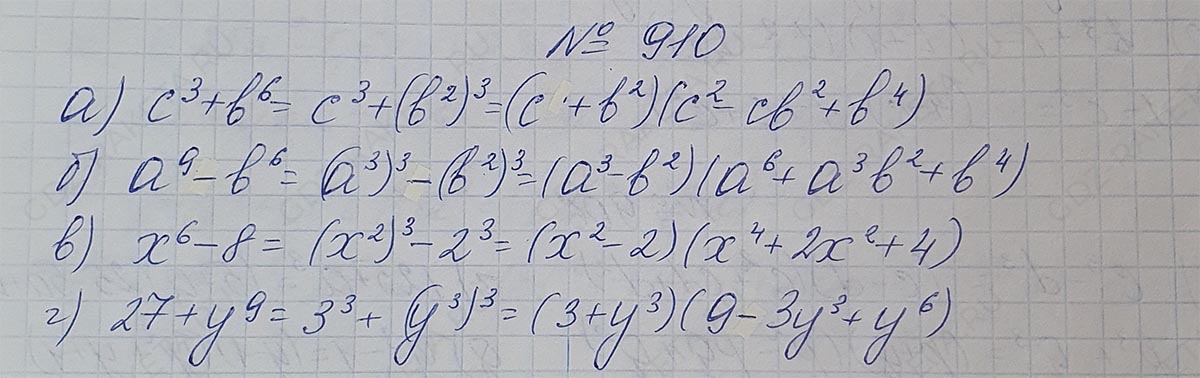 № 910
а) c³+b⁶= c³+(b²)³=(c+b²)(c²-cb²+b⁴)
б) a⁹-b⁶= (a³)³-(b²)³=(a³-b²)(a⁶+a³b²+b⁴)
в) x⁶-8= (x²)³-2³= (x²-2)(x⁴+2x²+4)
г) 27+y⁹= 3³+(y³)³= (3+y³)(9-3y³+y⁶)